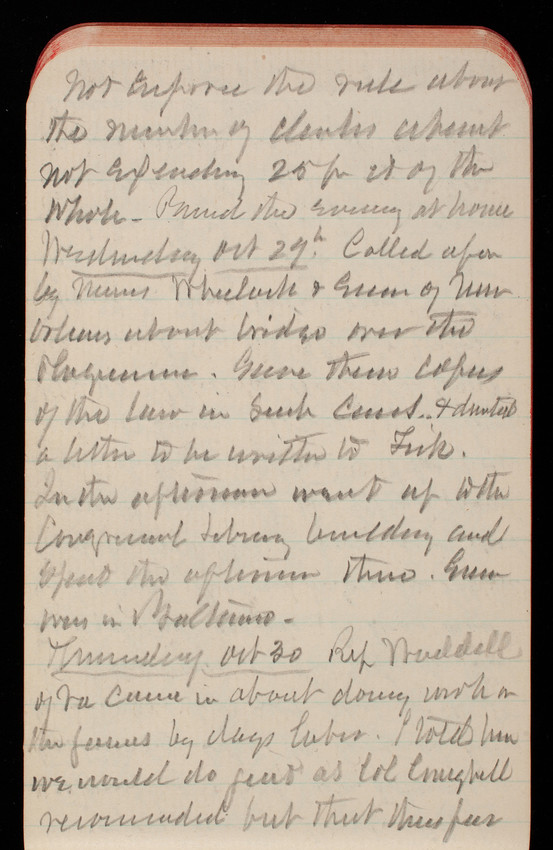 not enforce the rule about
the number of clerks absent
not exceeding 25 per ct of the
whole - Passed the evening at home
Wednesday Oct 29th. Called upon
by Messrs Wheelock & Green of New
Orleans about bridge over the
Plaquemine. Gave them copies
of the law in such cases. & directed
a letter to be written to Fisk.
In the afternoon went up to the
Congressnl Library building and
spent the afternoon there. Green
was in Baltimore -
Thursday Oct 30 Rep Waddell
of Va came in about doing work on
the by days labor. I told him
we would do just as Col Craighill
recommended but that thus far